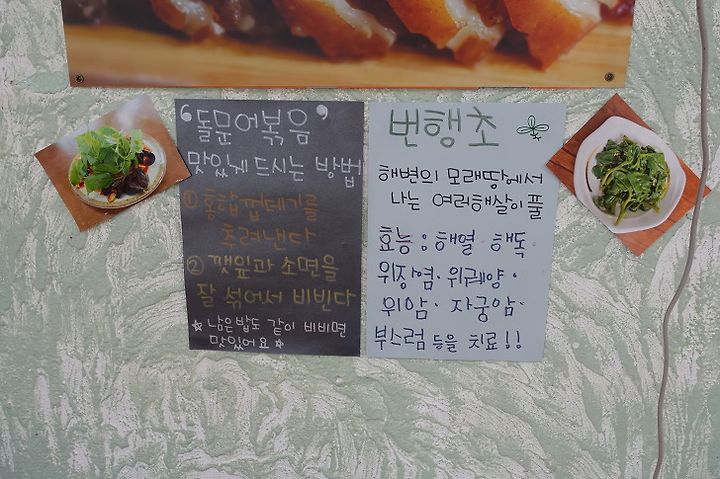 ‘돌문어볶음’
맛있게 드시는 방법
① 홍합껍데기를
추려낸다
② 깻잎과 소면을
잘 섞어서 비빈다
☆ 남은밥도 같이 비비면
맛있어요☆
번행초
해변의 모래땅에서
나는 여러해살이풀
효능 : 해열·해독·
위장염·위궤양·
위암·자궁암·
부스럼 등을 치료!!